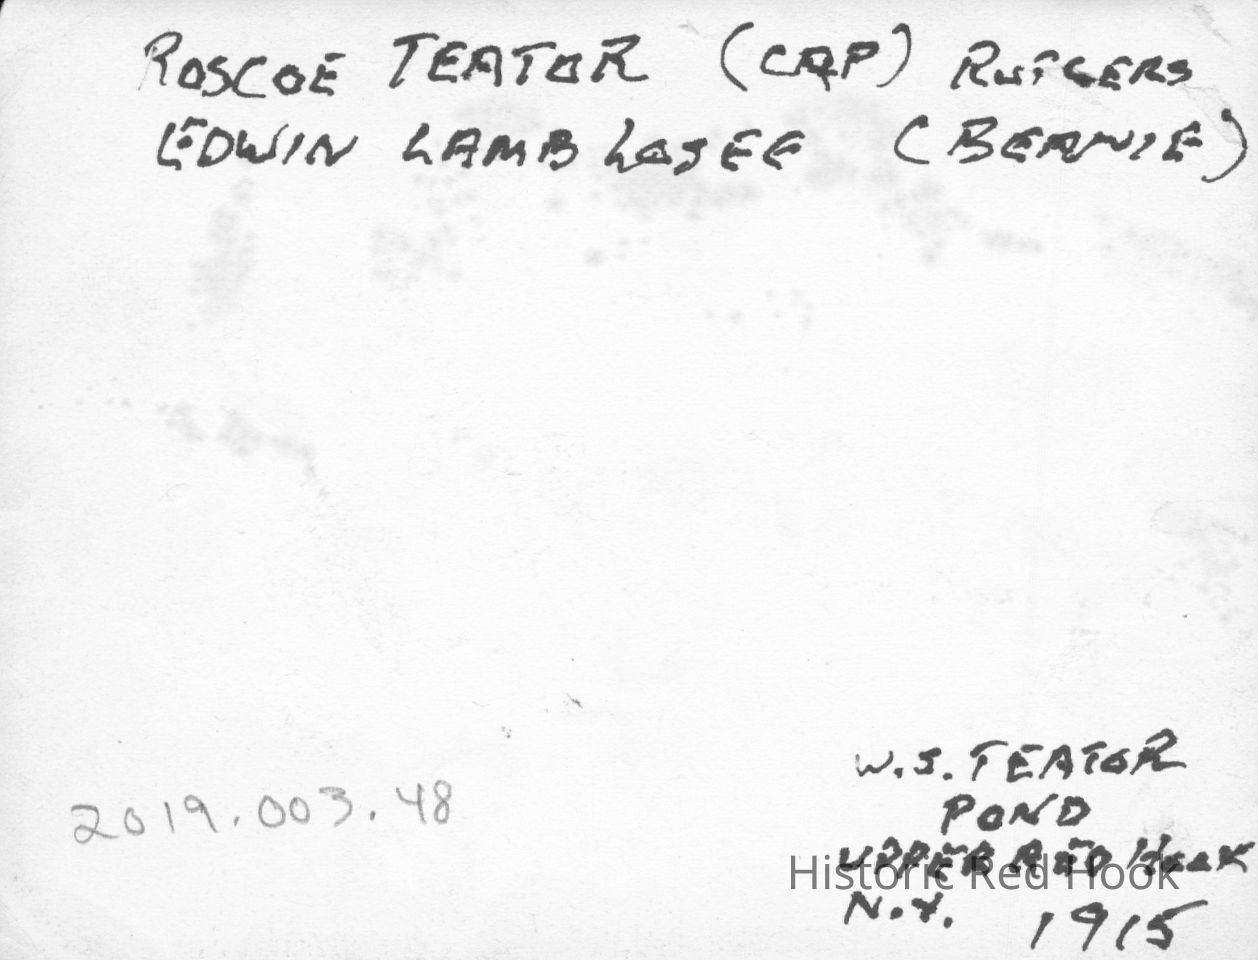 ROSCOE TEATOR (CAP) RUTGERS
EDWIN LAMB LOSEE (BERNIE)
W.S. TEATOR
POND
2019.003.48
UPPER RED HOOK
Historic Red Hook
N.Y. 1915